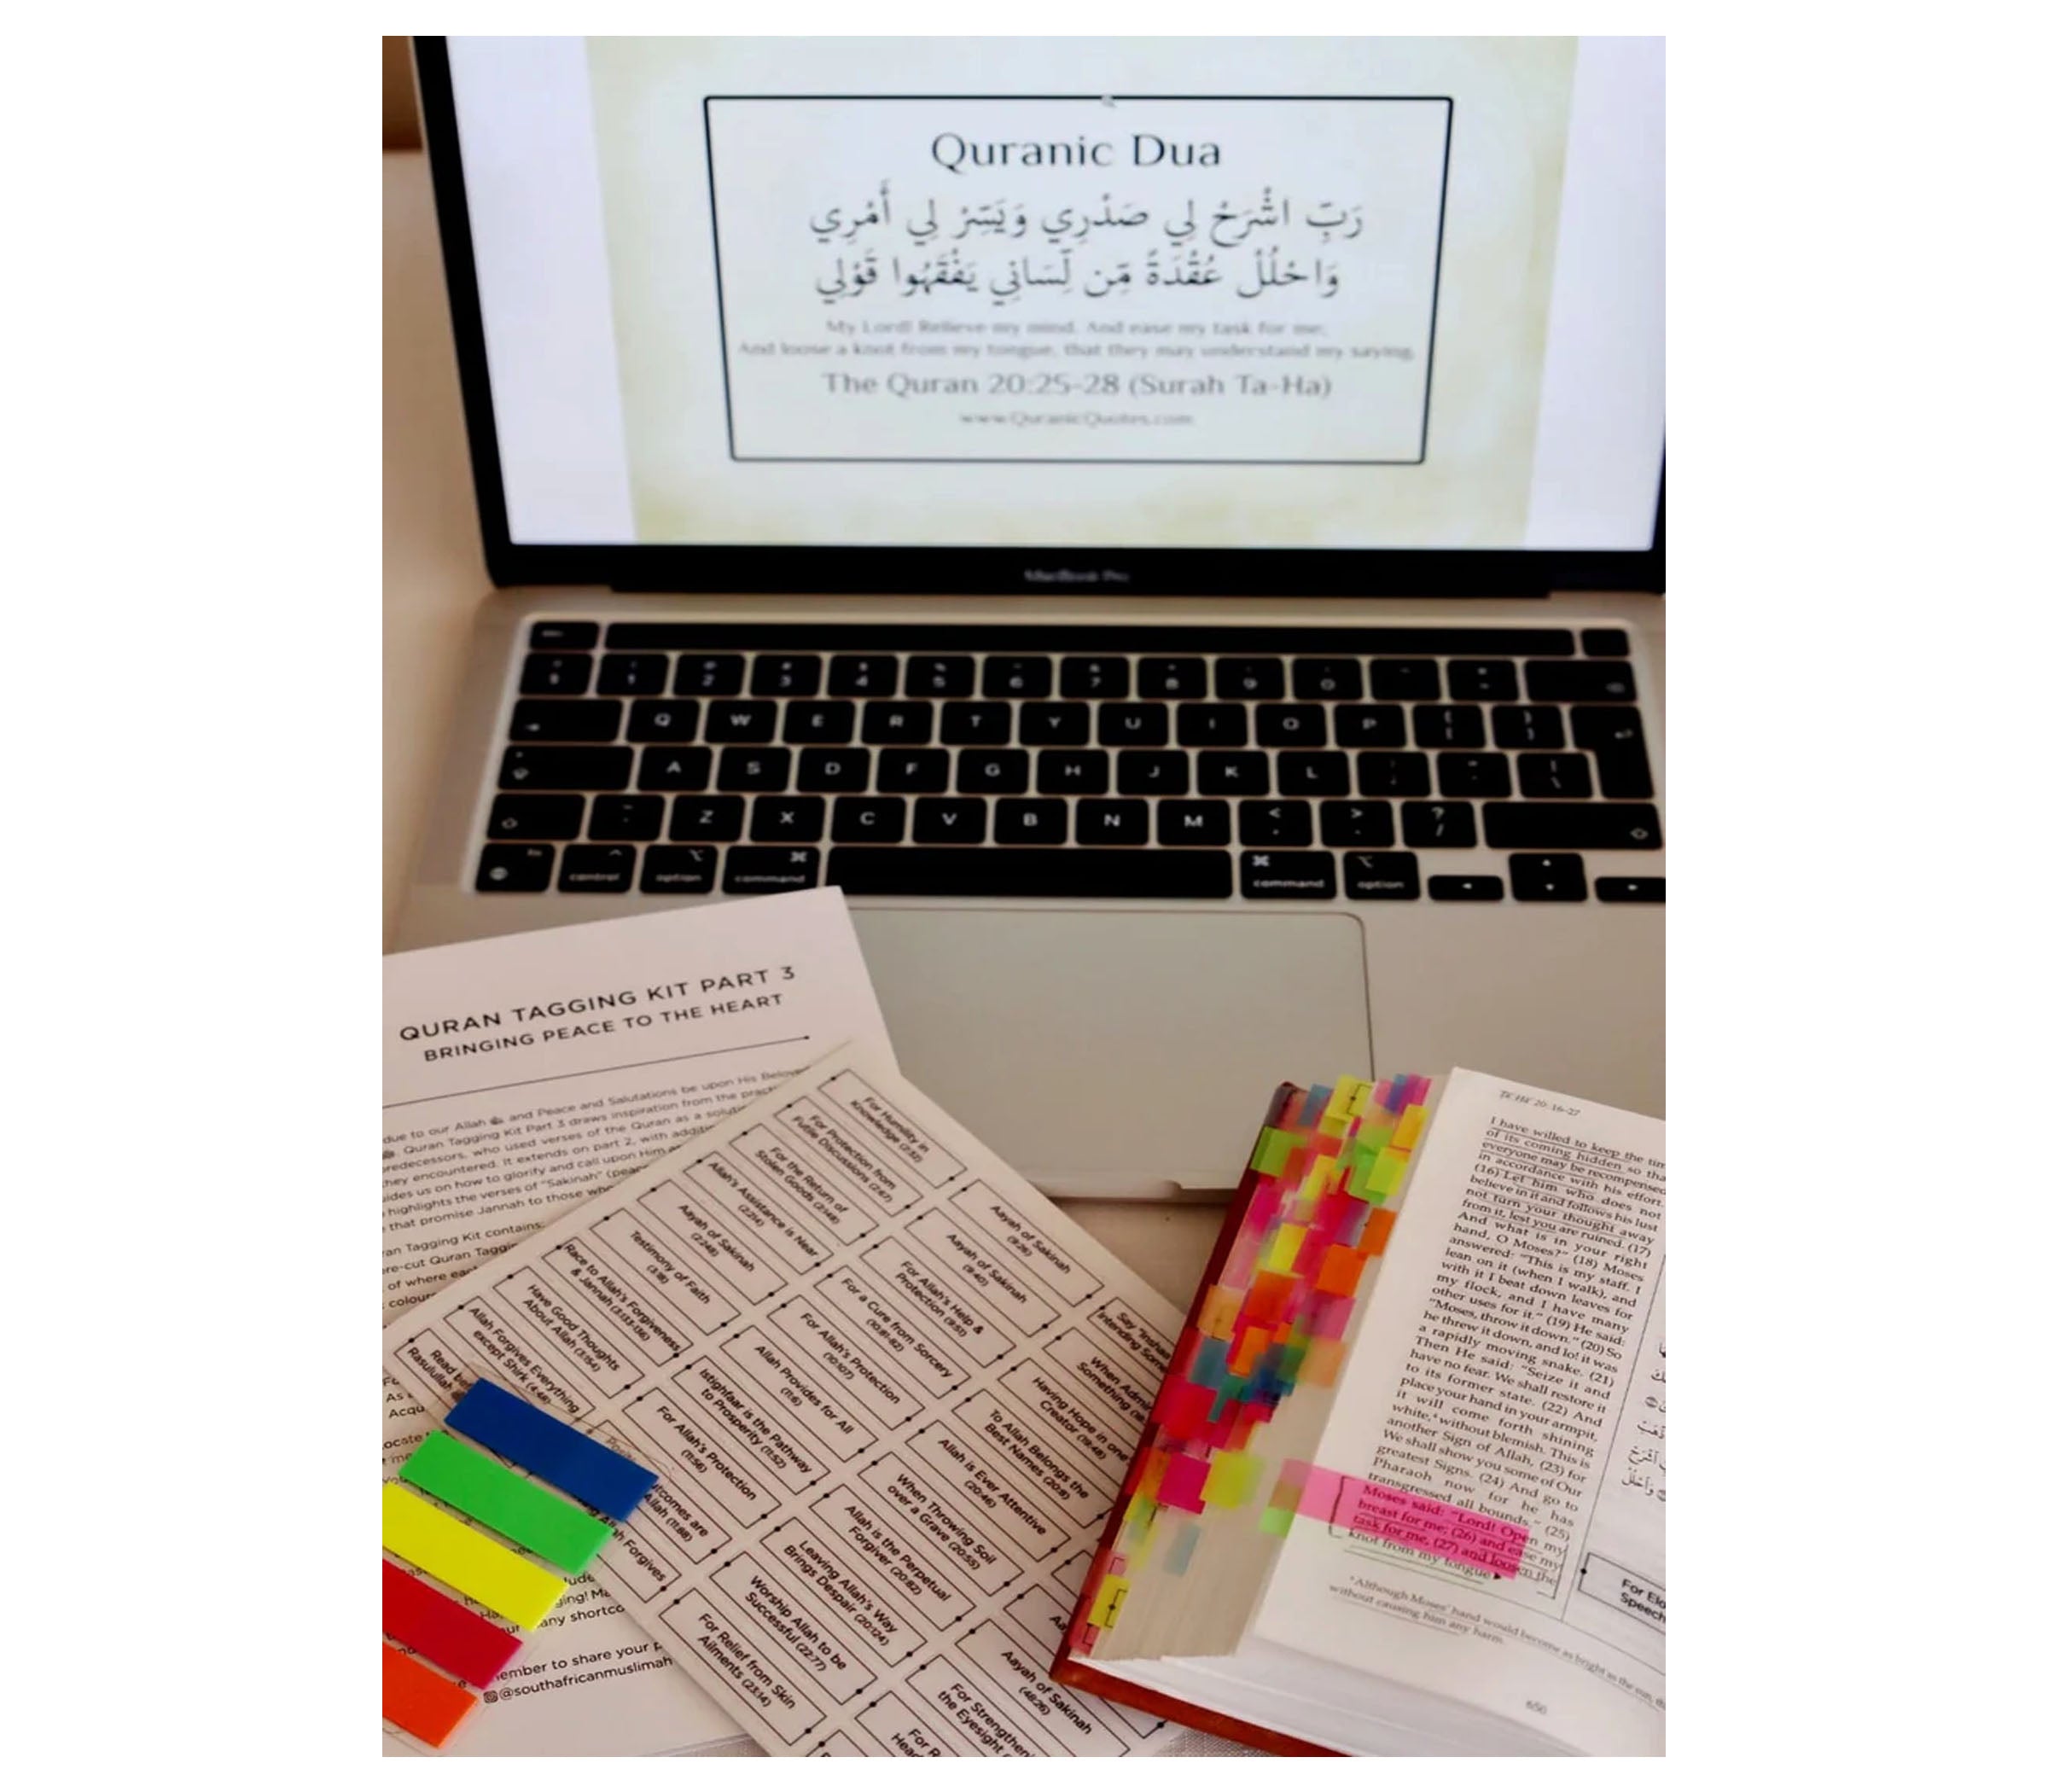 Quranic Dua
رَبِّ اشْرَحْ لِي صَدْرِي وَيَسِّرْ لِي أَمْرِي
وَاحْلُلْ عُقْدَةً مِّن لِّسَانِي يَفْقَهُوا قَوْلِي
My Lord! Relieve my mind. And ease my task for me;
And loose a knot from my tongue, that they may understand my saying.
The Quran 20:25-28 (Surah Ta-Ha)
www.QuranicQuotes.com
MacBook Pro
1 2 3 4 5 6 7 8 9 0
Q W E R T Y U I O P
A S D F G H J K L
Z X C V B N M
control option command command option
QURAN TAGGING KIT PART 3
BRINGING PEACE TO THE HEART
due to our Allah and Peace and Salutations be upon His
Quran Tagging Kit Part 3 draws inspiration from the
who used verses of the Quran as a
they encountered. It extends on part 2, with
us on how to glorify and call upon Him
highlights the verses of "Sakinah"
that promise Jannah to those
Tagging Kit contains:
Quran
of where
to share your
@southafricanmuslimah
For Humility in
Knowledge (2:32)
For Protection from
Futile Discussions (2:67)
For the Return of
Stolen Goods (2:148)
Allah's Assistance is Near
(2:214)
Aayah of Sakinah
(2:248)
Testimony of Faith
(3:18)
Race to Allah's Forgiveness
& Jannah (3:133-136)
Have Good Thoughts
About Allah (3:154)
Allah Forgives Everything
except Shirk (4:48)
Read
Rasulullah
Aayah of Sakinah
(9:26)
Aayah of Sakinah
(9:40)
For Allah's Help &
Protection (9:51)
For a Cure from Sorcery
(10:81-82)
For Allah's Protection
(10:107)
Allah Provides for All
(11:6)
Istighfaar is the Pathway
to Prosperity (11:52)
For Allah's Protection
(11:56)
are
Allah (11:88)
Allah Forgives
Say
When
Something
Having Hope in one's
Creator (19:48)
To Allah Belongs the
Best Names (20:8)
Allah is Ever Attentive
(20:46)
When Throwing Soil
over a Grave (20:55)
Allah is the Perpetual
Forgiver (20:82)
Leaving Allah's Way
Brings Despair (20:124)
Worship Allah to be
Successful (22:77)
For Relief from Skin
Ailments (23:14)
Aayah of Sakinah
(48:26)
For
the Eyesight
For
I have willed to keep the
of its coming hidden so
everyone may be recompensed
in accordance with his effort.
(16) Let him who does not
believe in it and follows his lust
not turn your thought away
from it, lest you are ruined. (17)
And what is in your right
hand, O Moses?" (18) Moses
answered: "This is my staff. I
lean on it (when I walk), and
with it I beat down leaves for
my flock, and I have many
other uses for it." (19) He said:
"Moses, throw it down." (20) So
he threw it down, and lo! it was
a rapidly moving snake. (21)
Then He said: "Seize it and
have no fear. We shall restore it
to its former state. (22) And
place your hand in your armpit,
it will come forth shining
white, without blemish. This is
another Sign of Allah, (23) for
We shall show you some of Our
greatest Signs. (24) And go to
Pharaoh now for he has
transgressed all bounds." (25)
Moses said: "Lord! Open my
breast for me; (26) and ease my
task for me, (27) and loosen the
knot from my tongue
Although Moses' hand would become as bright as the sun,
without causing him any harm.
650
For
Speech